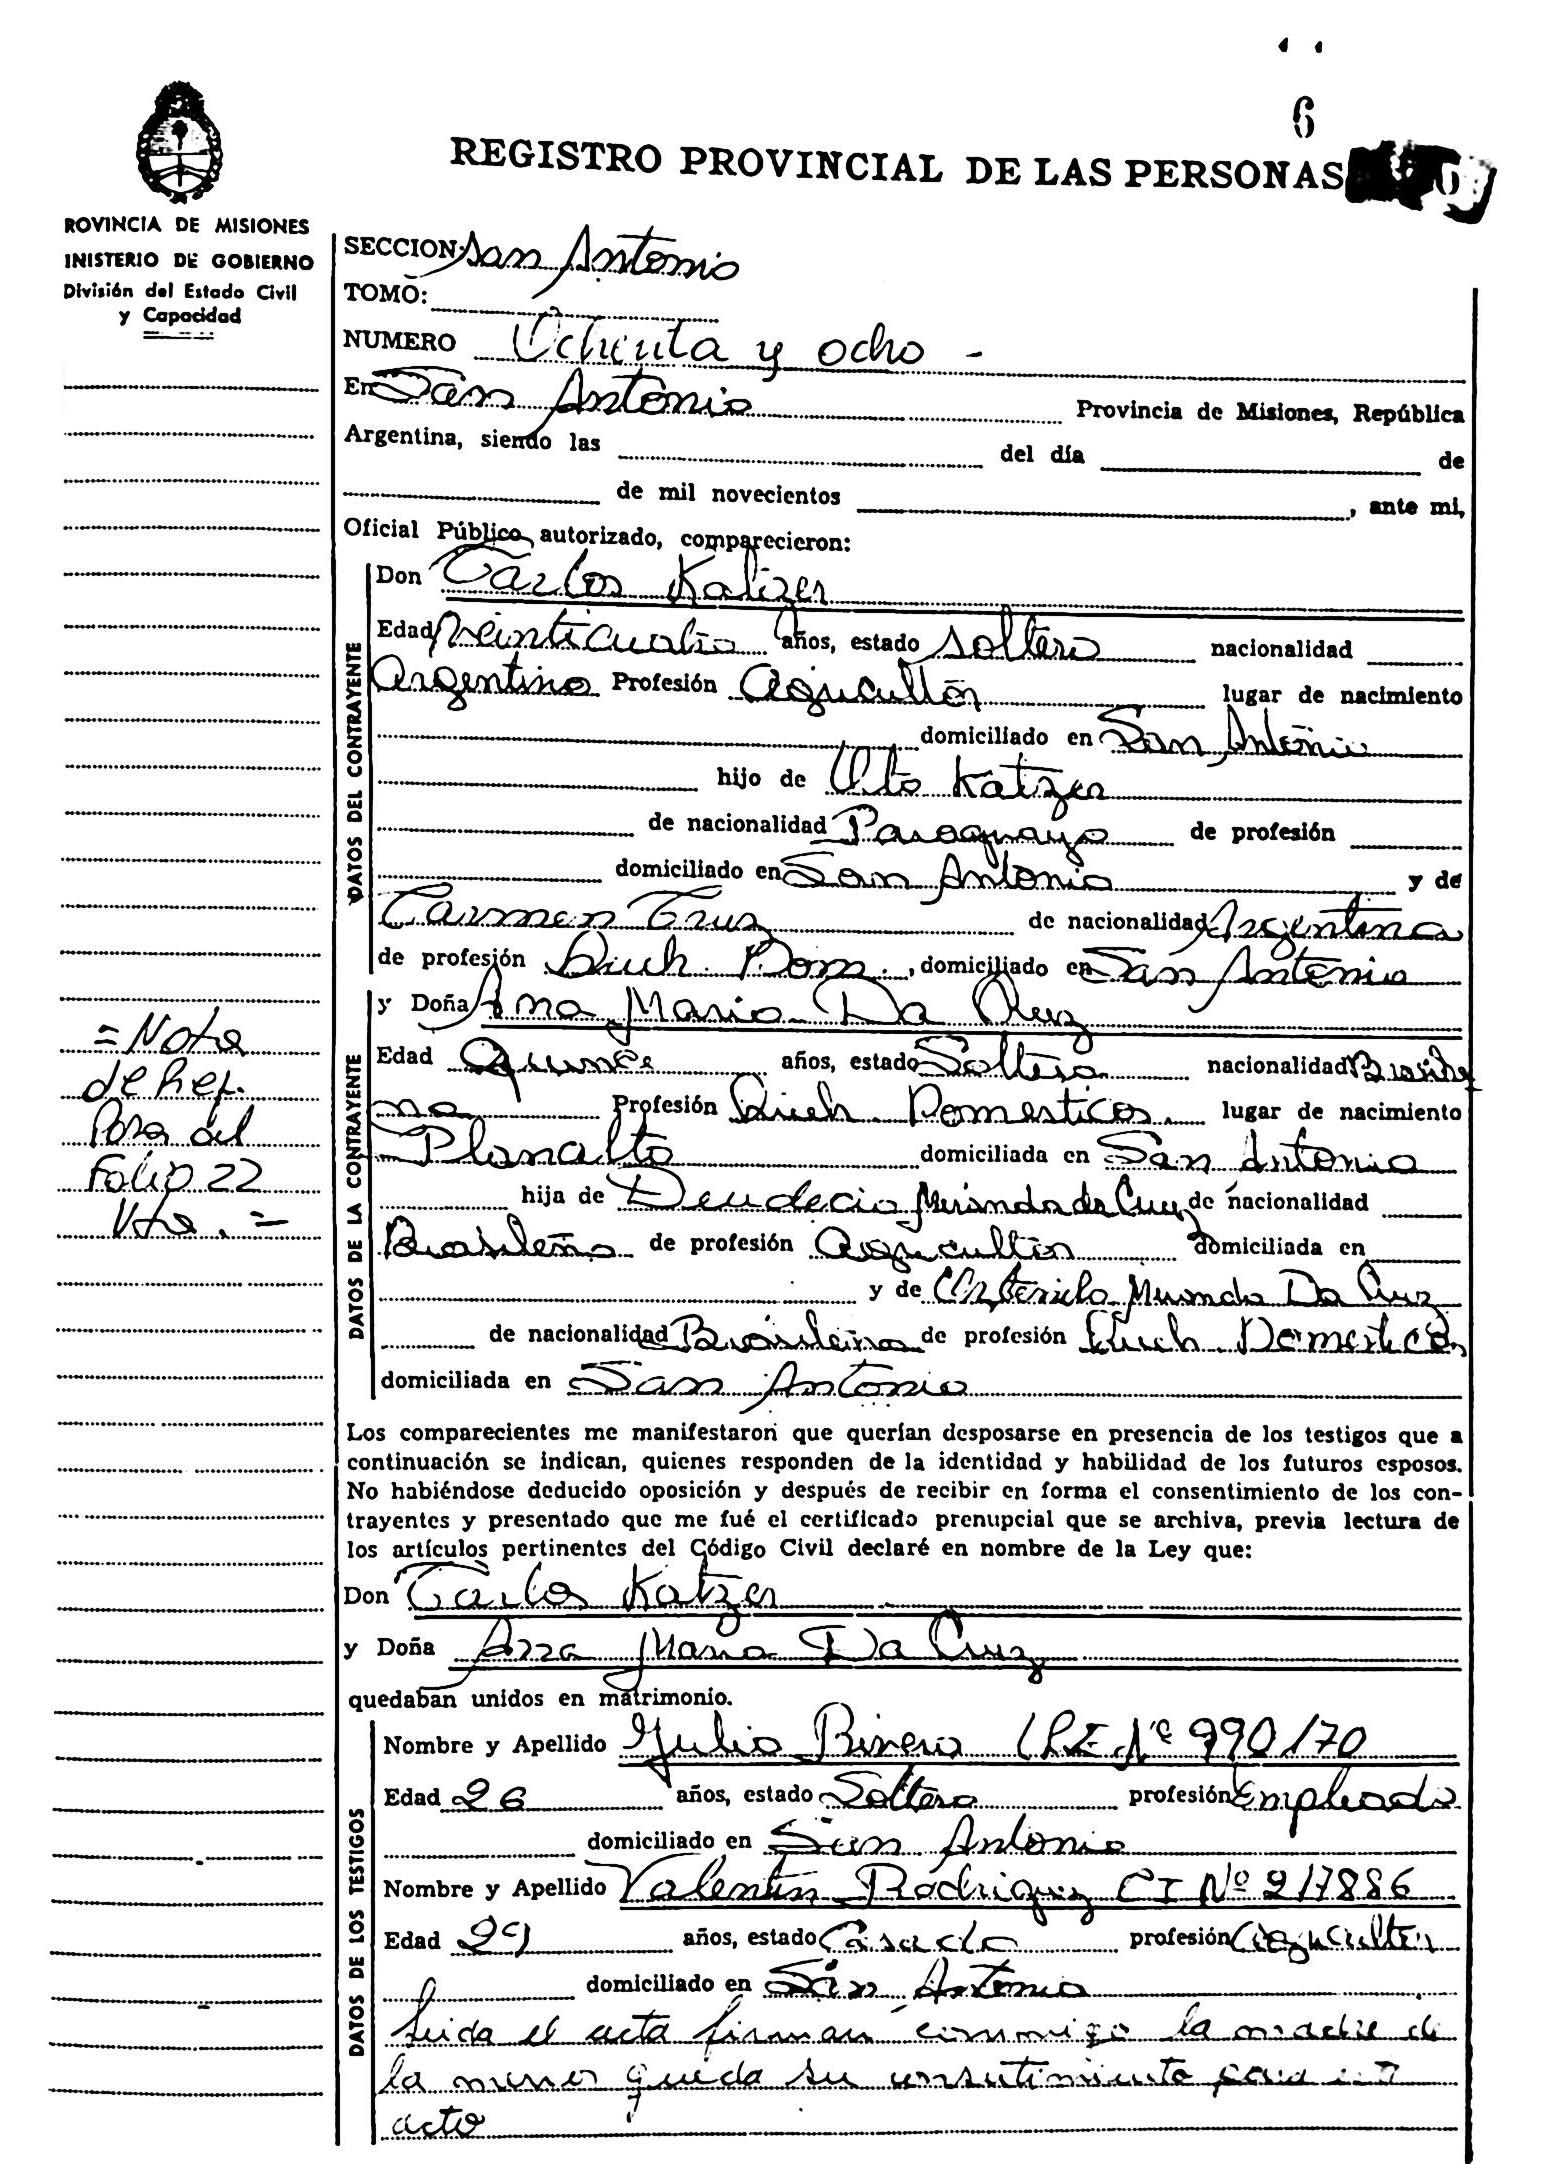 6
REGISTRO PROVINCIAL DE LAS PERSONAS
ROVINCIA DE MISIONES
INISTERIO DE GOBIERNO
División del Estado Civil
y Capacidad
SECCION: San Antonio
TOMO:
NUMERO Ochenta y ocho -
En San Antonio Provincia de Misiones, República
Argentina, siendo las del día de
de mil novecientos , ante mi,
Oficial Público autorizado, comparecieron:
DATOS DEL CONTRAYENTE
Don Carlos Katzer
Edad Veinticuatro años, estado soltero nacionalidad
Argentino Profesión Agricultor lugar de nacimiento
domiciliado en San Antonio
hijo de Oto Katzer
de nacionalidad Paraguayo de profesión
domiciliado en San Antonio y de
Carmen Cruz de nacionalidad Argentina
de profesión Queh. Dom. , domiciliado en San Antonio
DATOS DE LA CONTRAYENTE
y Doña Ana Maria Da Cruz
Edad Quince años, estado Soltera nacionalidad Brasile
na Profesión Queh. Domesticos. lugar de nacimiento
Planalto domiciliada en San Antonio
hija de Deudecio Miranda da Cruz de nacionalidad
Brasileño de profesión Agricultor domiciliada en
y de Miranda Da Cruz
de nacionalidad Brasileña de profesión Queh. Domesticos
domiciliada en San Antonio
= Nota
de Ref.
Pasa del
Folio 22
Vto. =
Los comparecientes me manifestaron que querían desposarse en presencia de los testigos que a
continuación se indican, quienes responden de la identidad y habilidad de los futuros esposos.
No habiéndose deducido oposición y después de recibir en forma el consentimiento de los con-
trayentes y presentado que me fué el certificado prenupcial que se archiva, previa lectura de
los artículos pertinentes del Código Civil declaré en nombre de la Ley que:
Don Carlos Katzer
y Doña Ana Maria Da Cruz
quedaban unidos en matrimonio.
DATOS DE LOS TESTIGOS
Nombre y Apellido Julio Rivero Nº 990/70
Edad 26 años, estado Soltero profesión Empleado
domiciliado en San Antonio
Nombre y Apellido Valentin Rodriguez CI Nº 217886
Edad 29 años, estado Casado profesión Agricultor
domiciliado en San Antonio
Leida el acta firman conmigo la madre de
la menor su consentimiento para este
acto